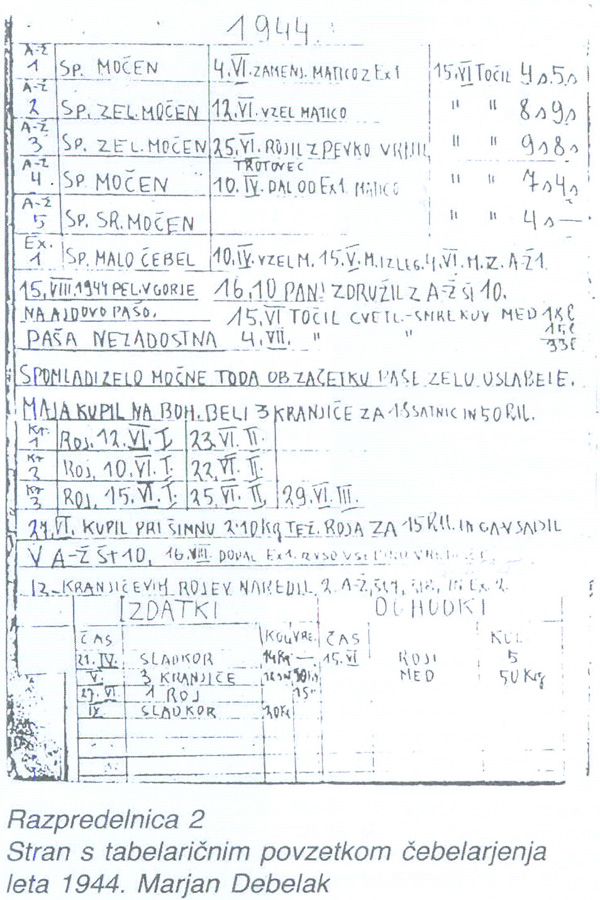 1944.
A-Ž 1 SP. MOČEN 4.VI. ZAMENJ. MATICO Z Ex1 15.VI TOČIL 4s5s
A-Ž 2 SP. ZEL. MOČEN 12.VI. VZEL MATICO " " 8s9s
A-Ž 3 SP. ZEL. MOČEN 25.VI. ROJIL Z PEVKO " " 9s8s
TROTOVEC
A-Ž 4. SP. MOČEN 10.IV. DAL OD Ex1. MATICO " " 7s4s
A-Ž 5 SP. SR. MOČEN " " 4s—
Ex. 1 SP. MALO ČEBEL 10.IV. VZEL M. 15.V. M. IZLEG. 4.VI. M. Z. A-Ž1.
15.VIII.1944 PELV GORJE 16,10 PANJ ZDRUŽIL Z A-Ž ŠT 10.
NA AJDOVO PAŠO. 15.VI TOČIL CVETL.-SMREKOV MED 18l
PAŠA NEZADOSTNA 4.VII. " " 15l
33l
SPOMLADI ZELO MOČNE TODA OB ZAČETKU PAŠE ZELO USLABELE.
MAJA KUPIL NA BOH. BELI 3 KRANJIČE ZA 1 SATNIC IN 50 RM.
Kr. 1 ROJ. 12.VI. I. 23.VI. II.
Kr 2 ROJ. 10.VI. I. 22.VI. II.
Kr 3 ROJ. 15.VI. I. 25.VI. II. 29.VI. III.
27.VI. KUPIL PRI ŠIMNU 2·10 Kg TEŽ. ROJA ZA 15 RM. IN GA VSADIL
V A-Ž ŠT 10, 16.VIII. DODAL Ex1.
IZ KRANJIČEVIH ROJEV NAREDIL 2 A-Ž, Ex 2.
IZDATKI DOHODKI
ČAS KOL VRE. ČAS KOL
21.IV. SLADKOR 14Kg — 15.VI ROJI 5
V. 3 KRANJIČE MED 50 Kg
27.VI 1 ROJ 15"
IX SLADKOR 20Kg
Razpredelnica 2
Stran s tabelaričnim povzetkom čebelarjenja
leta 1944. Marjan Debelak